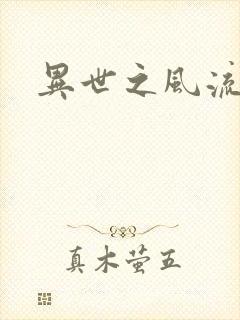 異世之風流
真木萤五